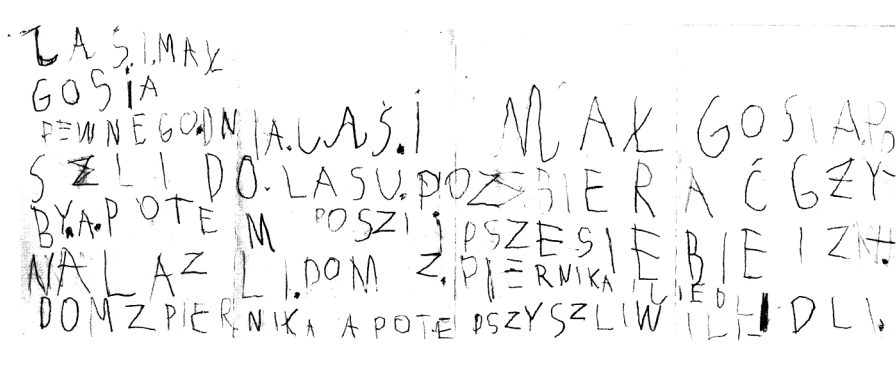 JAŚ.I.MAŁ
GOSIA
PEWNEGO.DNIA.JAŚ.I MAŁGOSIA.PO
SZLI DO.LASU.POZBIERAĆ GZY
BY.A.POTEM POSZLI PSZESIEBIE I ZN
NALAZLI.DOM Z.PIERNIKA I
DOM Z PIERNIKA A POTE PSZYSZLI W